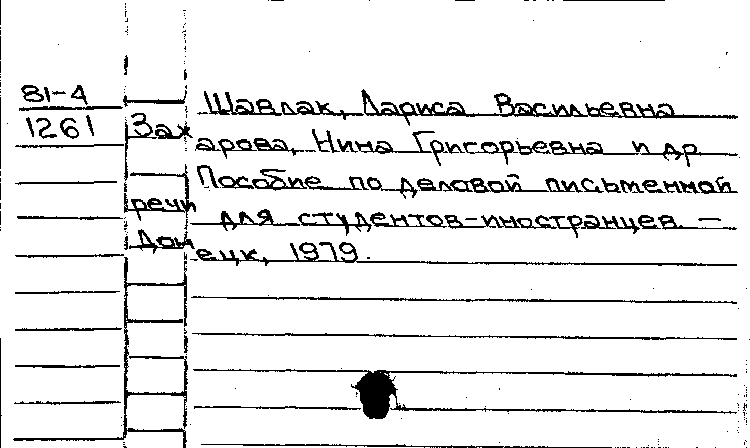 81-4 Шавлак, Лариса Васильевна
1261 Захарова, Нина Григорьевна и др
Пособие по деловой письменной
речи для студентов-иностранцев. —
Донецк, 1979.